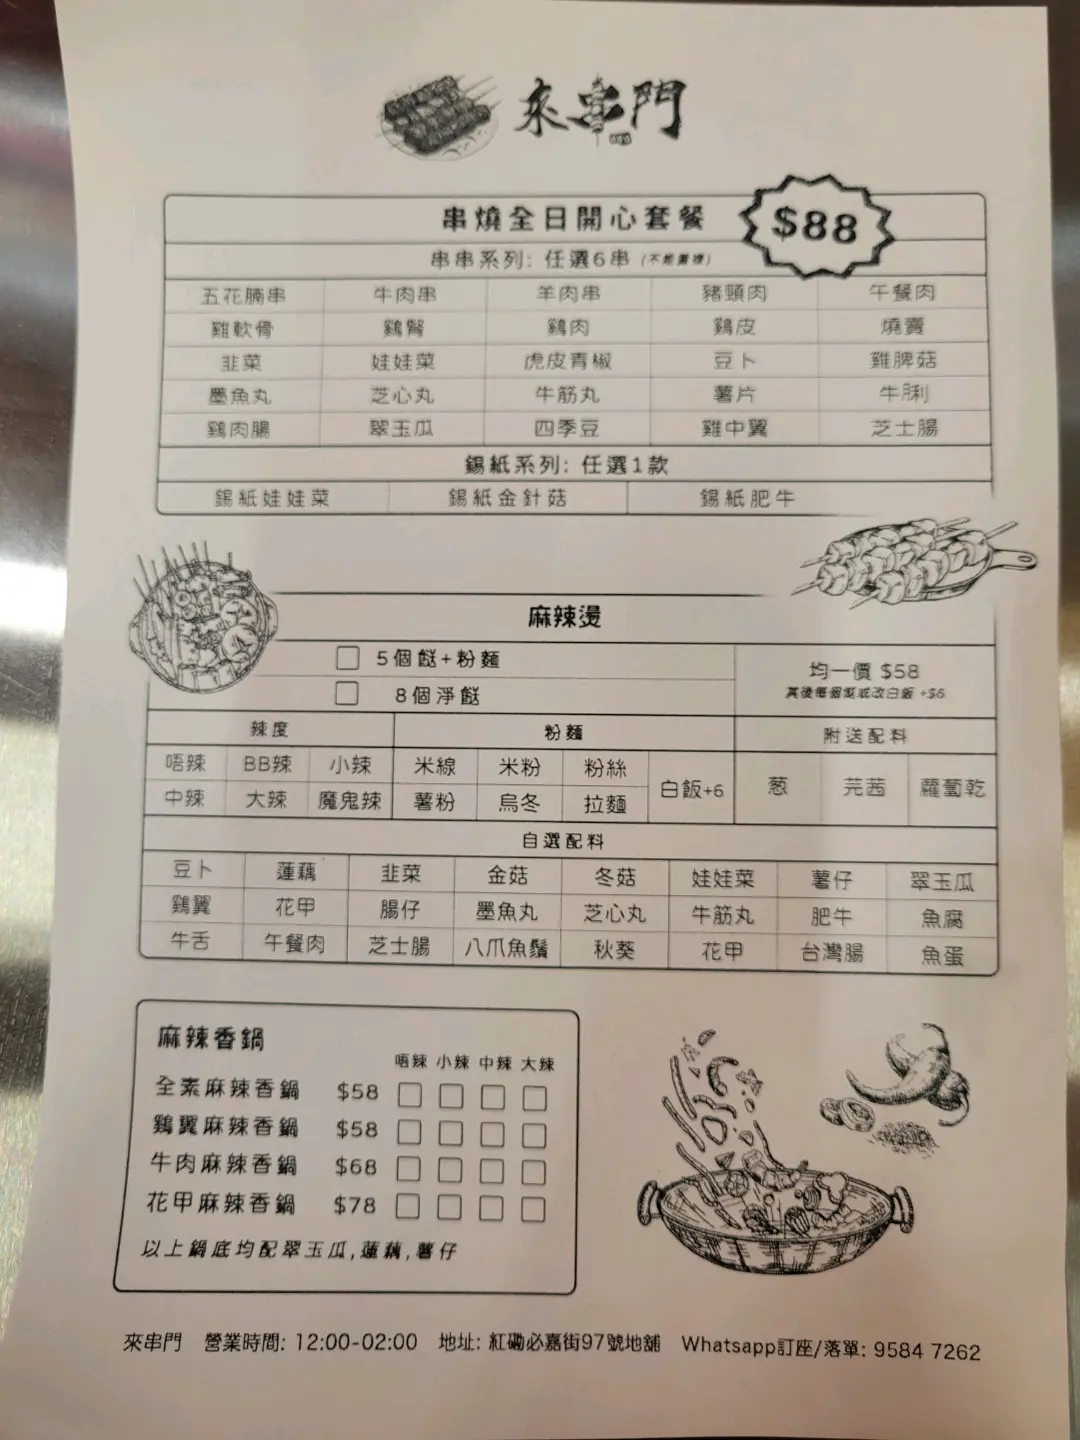 來串門
串燒全日開心套餐 $88
串串系列: 任選6串 (不能重複)
五花腩串 牛肉串 羊肉串 豬頸肉 午餐肉
雞軟骨 鷄腎 鷄肉 鷄皮 燒賣
韭菜 娃娃菜 虎皮青椒 豆卜 雞脾菇
墨魚丸 芝心丸 牛筋丸 薯片 牛脷
鷄肉腸 翠玉瓜 四季豆 雞中翼 芝士腸
錫紙系列: 任選1款
錫紙娃娃菜 錫紙金針菇 錫紙肥牛
麻辣燙
5個餸+粉麵
8個淨餸
均一價 $58
其後每個餸或改白飯 +$6
辣度 粉麵 附送配料
唔辣 BB辣 小辣 米線 米粉 粉絲 白飯+6 葱 芫茜 蘿蔔乾
中辣 大辣 魔鬼辣 薯粉 烏冬 拉麵
自選配料
豆卜 蓮藕 韭菜 金菇 冬菇 娃娃菜 薯仔 翠玉瓜
鷄翼 花甲 腸仔 墨魚丸 芝心丸 牛筋丸 肥牛 魚腐
牛舌 午餐肉 芝士腸 八爪魚鬚 秋葵 花甲 台灣腸 魚蛋
麻辣香鍋
唔辣 小辣 中辣 大辣
全素麻辣香鍋 $58
鷄翼麻辣香鍋 $58
牛肉麻辣香鍋 $68
花甲麻辣香鍋 $78
以上鍋底均配翠玉瓜,蓮藕,薯仔
來串門 營業時間: 12:00-02:00 地址: 紅磡必嘉街97號地舖 Whatsapp訂座/落單: 9584 7262